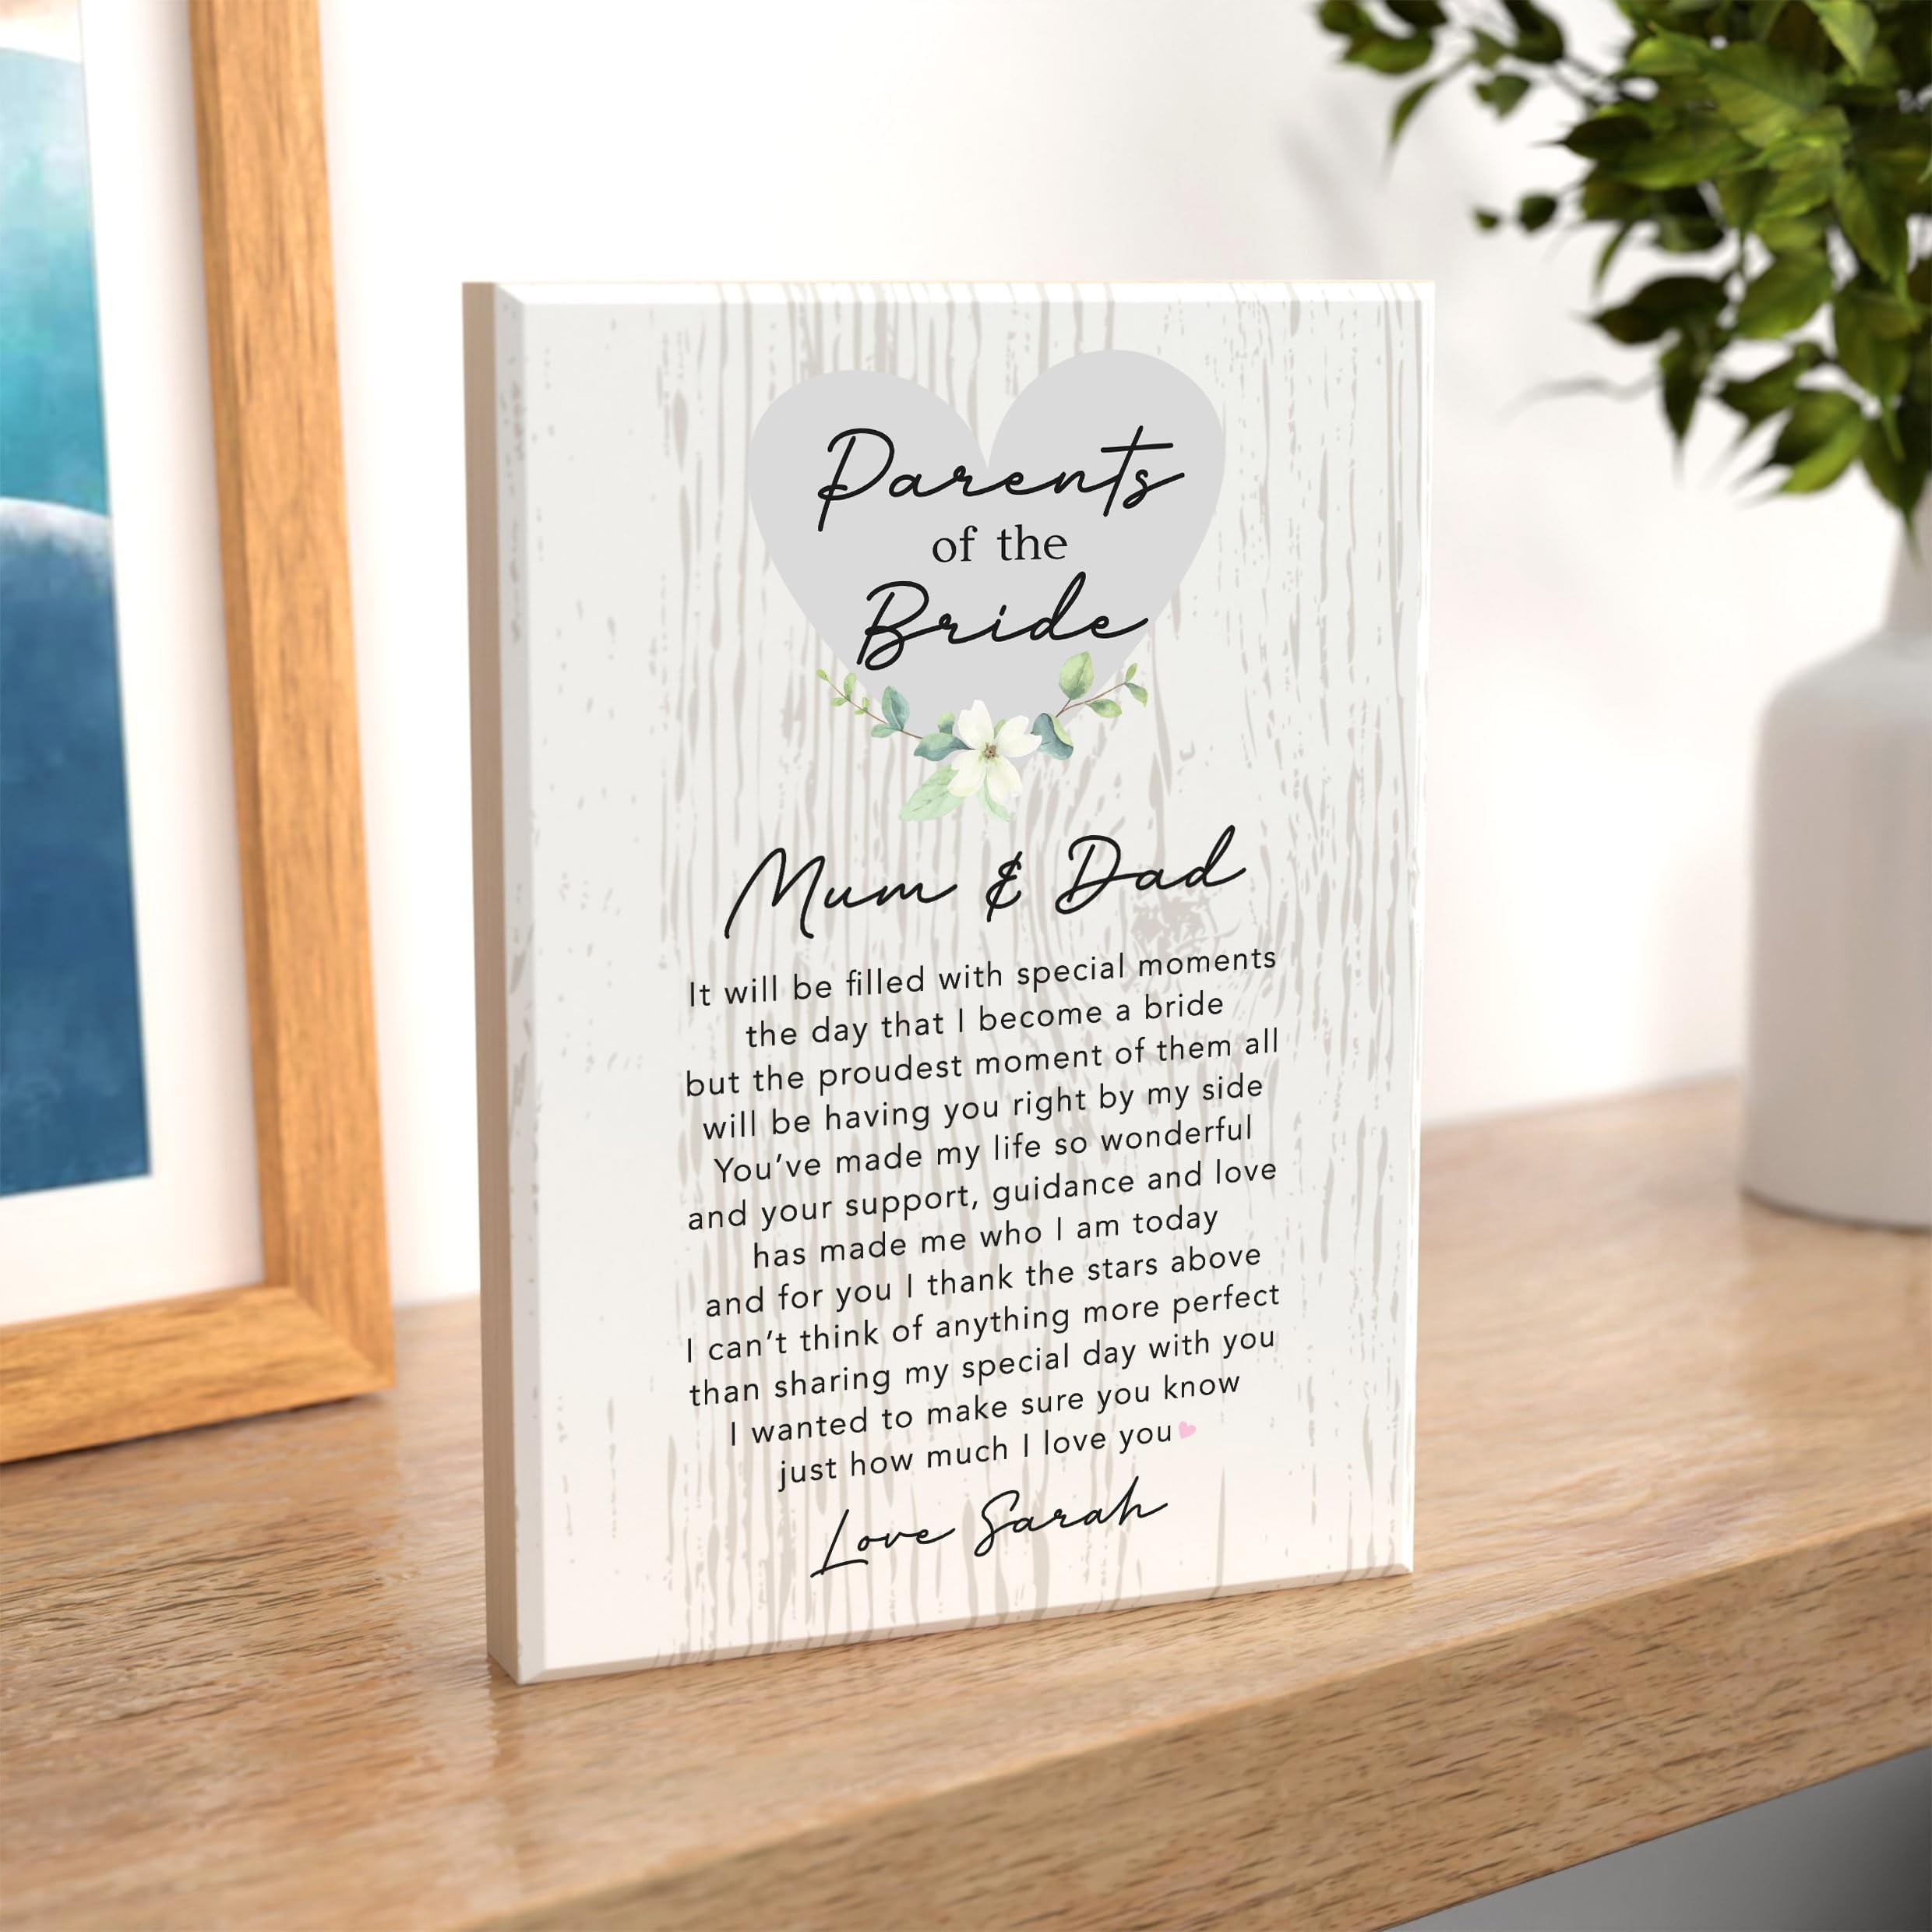 Parents
of the
Bride
Mum & Dad
It will be filled with special moments
the day that I become a bride
but the proudest moment of them all
will be having you right by my side
You’ve made my life so wonderful
and your support, guidance and love
has made me who I am today
and for you I thank the stars above
I can’t think of anything more perfect
than sharing my special day with you
I wanted to make sure you know
just how much I love you
Love Sarah